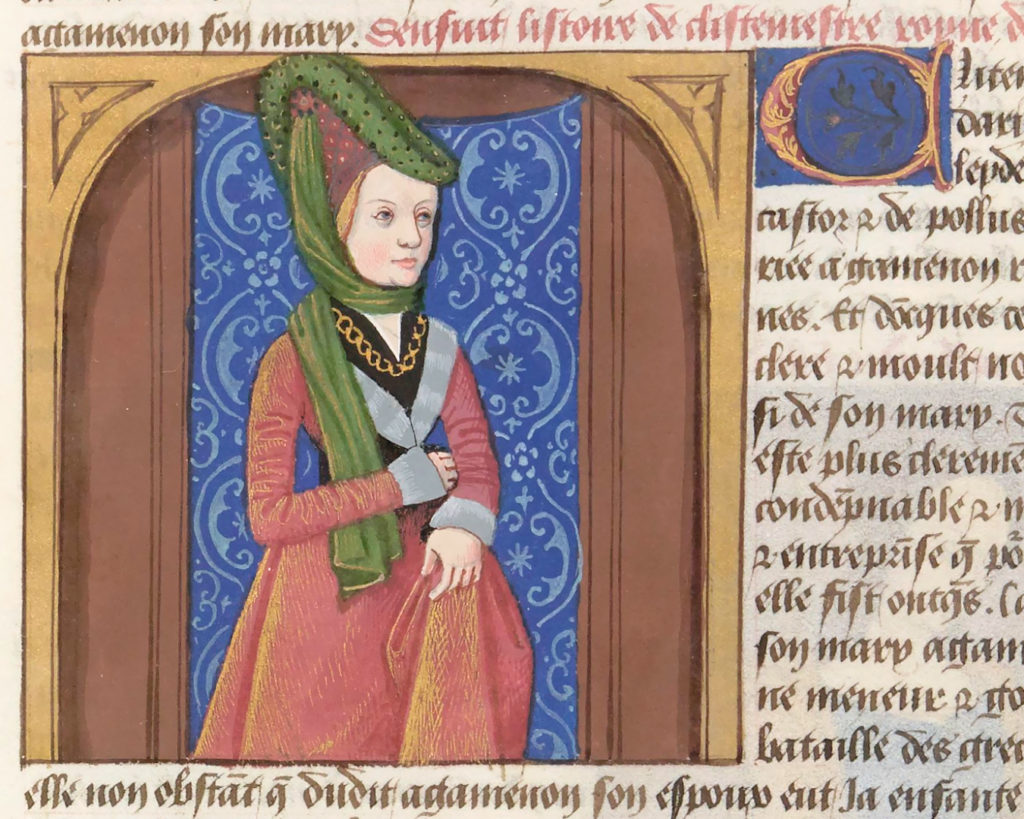 agamenon son mary. Sensuit listoire de clistemestre royne d
castor & de pollus
riee a gamenon r
nes. Et docques
clere & moult no
si de son mary.
este plus clereme
condēpnable &
& entreprise q̄
elle fist ontq̄s. La
son mary agam
ne meneur &
bataille des grec
elle non obstāt q̄ dudit agamenon son espoux eut Ja enfante